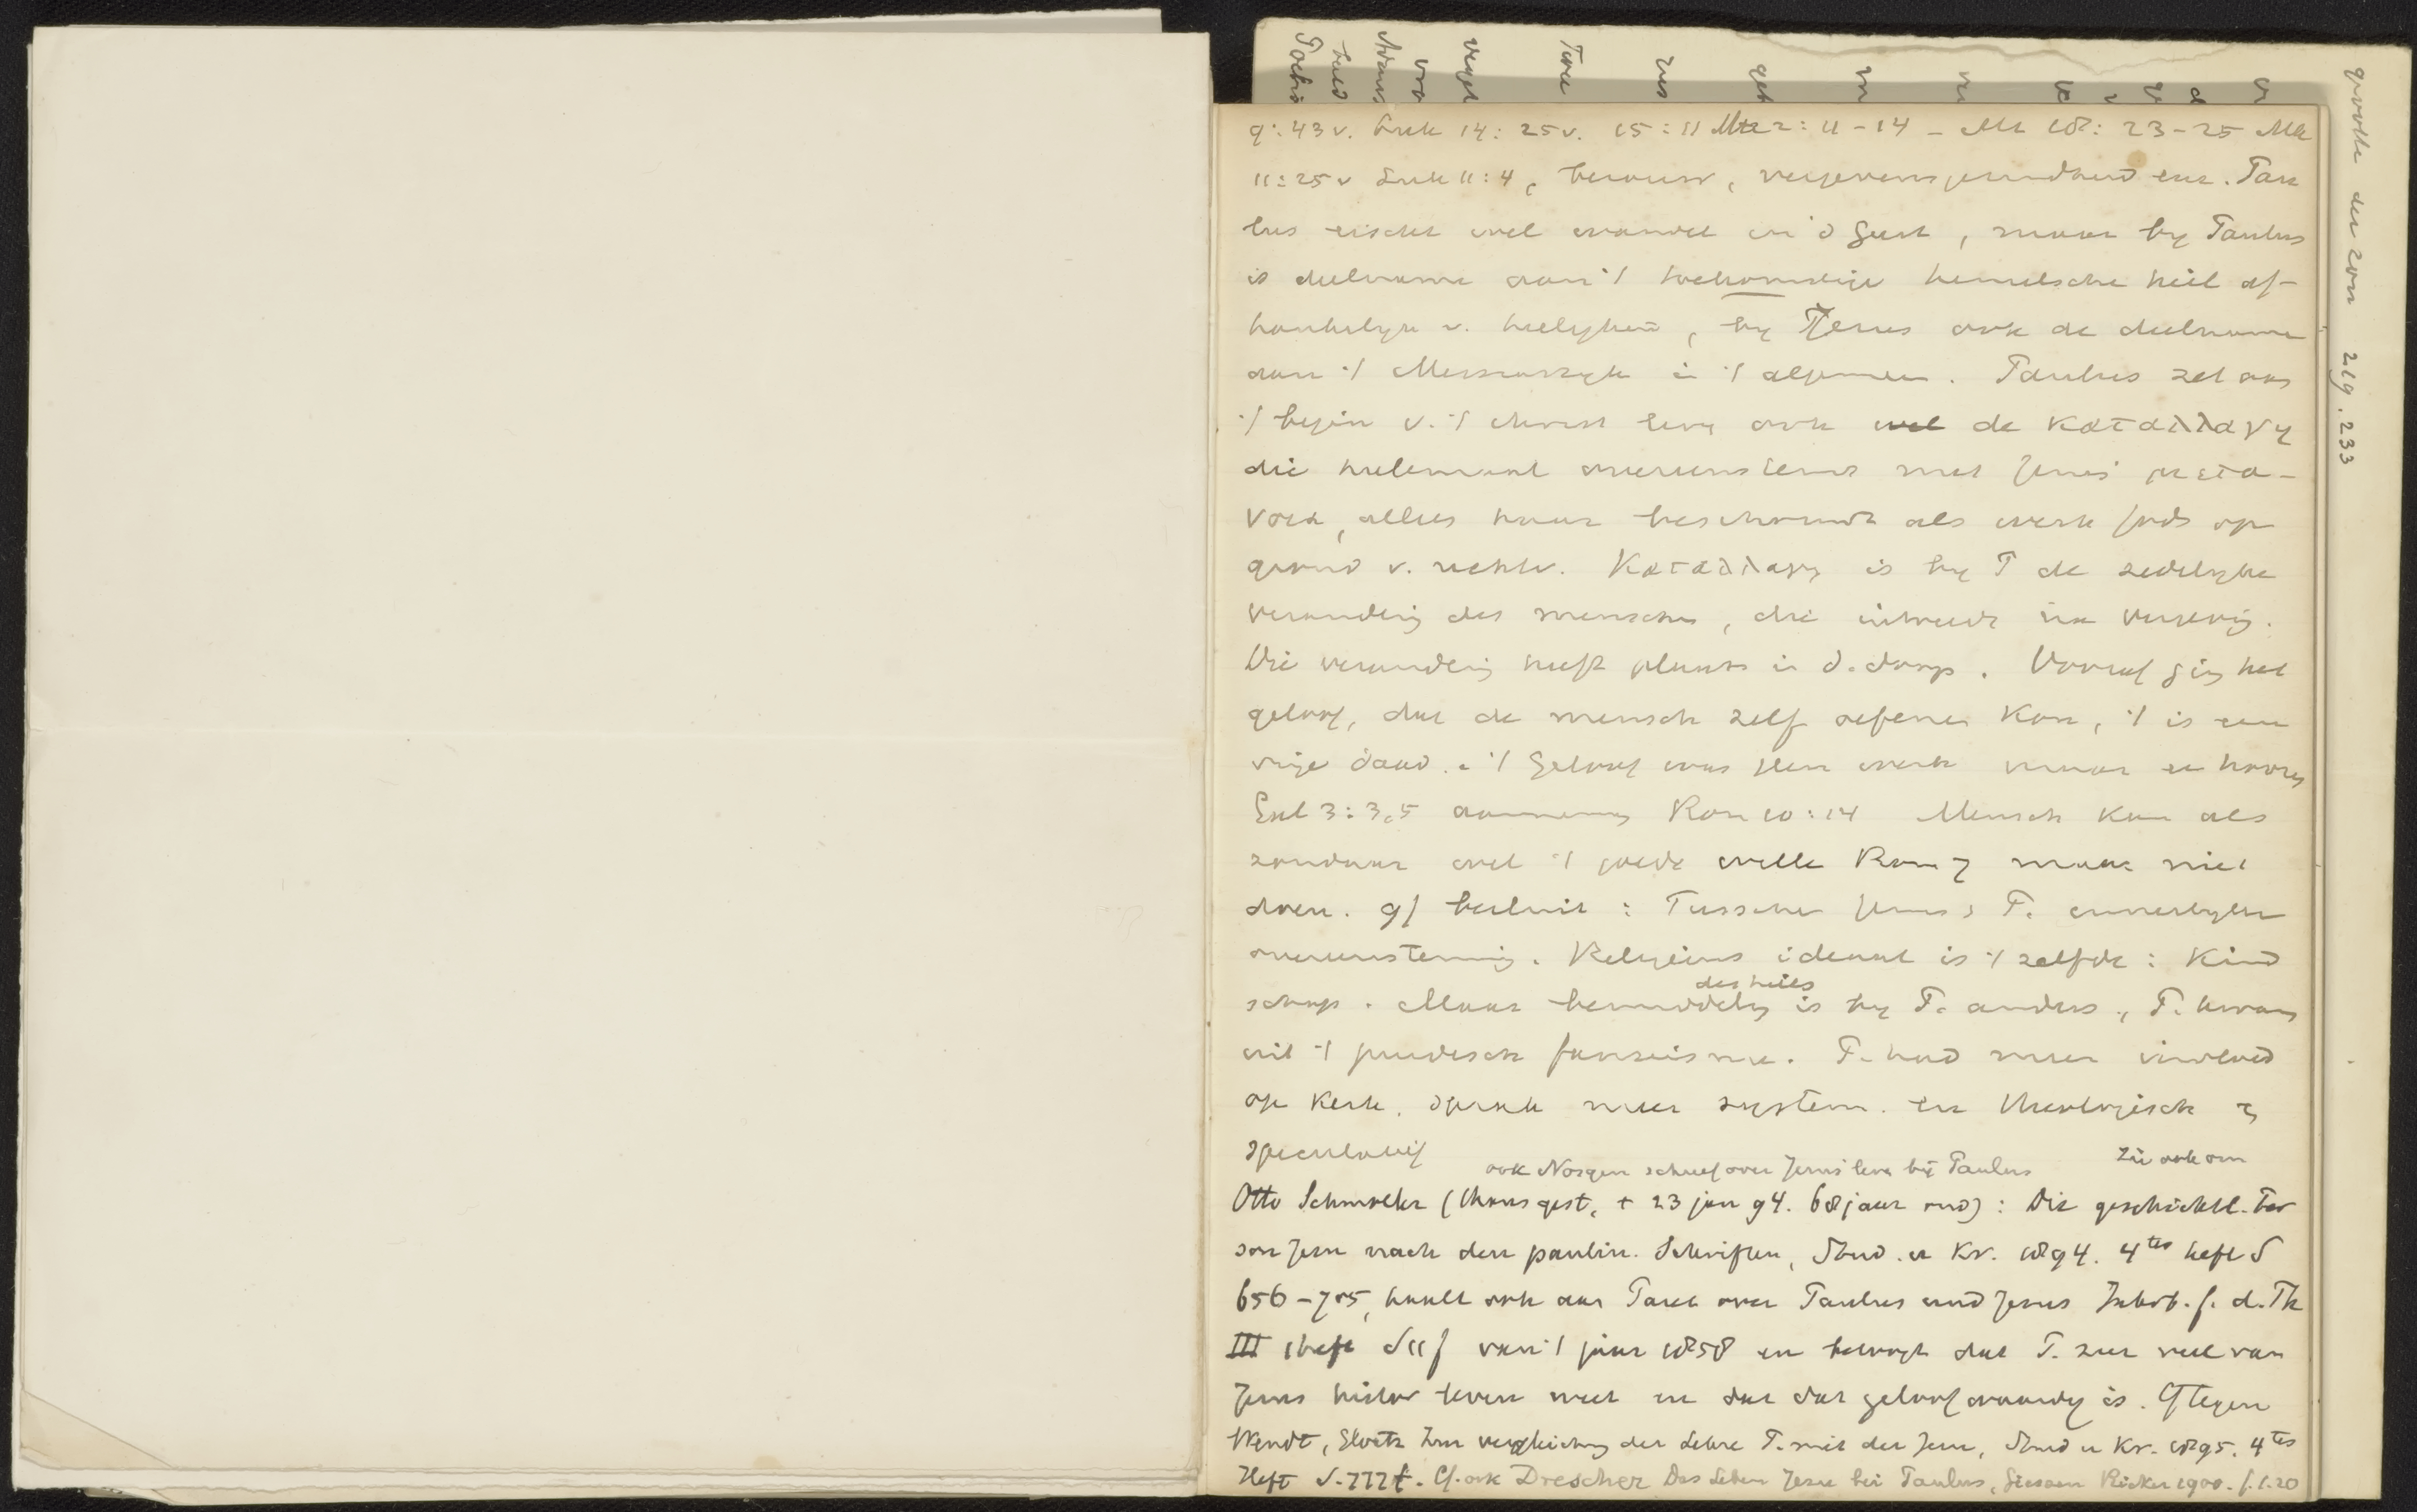 9:43v. Luk 14:25v. 15:11 Mt 22:11-14 - Mt 18:23-25 Mk
11:25v Luk 11:4, berouw, vergevensgezindheid enz. Pau
lus eischt wel wandel in d Geest, maar by Paulus
is deelname aan 't toekomstige hemelsche heil af-
hankelyk v. heelyken, by Jezus ook de deelname
aan 't Messiasryk in 't algemeen. Paulus zet aan
't begin v. 't christ leven ook wel de καταλλαγη
die heelemaal overeenstemt met Jezus' μετα-
νοια, alles haar beschouwt als werk Gods op
grond v. rechtv. Καταλλαγη is by P de zedelyke
verandering des menschen, die intreedt na vergeving.
Die verandering heeft plaats in d. doop. Vooraf ging het
geloof, dat de mensch zelf oefenen kon, 't is een
vrije daad. 't Geloof was geen werk maar een hooren
Gal 3:3,5 aanneming Rom 10:14 Mensch kan als
zondaar wel 't goede willen Rom 7 maar niet
doen. 9/ besluit: Tusschen Jezus & P. innerlyke
overeenstemming. Religieus ideaal is 't zelfde: Kind
des heils
schap. Maar bemiddeling is by P. anders, P. kwam
uit 't joodsch farizeisme. P. had meer invloed
op Kerk, sprak meer system. en theologisch &
speculatief
ook Nösgen schreef over Jezus leven bij Paulus
Zie ook om
Otto Schmoller (Thans gest, + 23 jan 94. 68 jaar oud): Die geschichtl. Per
son Jesu nach den paulin. Schriften, Stud. u Kr. 1894. 4tes heft S
656-705, haalt ook aan Paret over Paulus und Jesus Jahrb. f. d. Th
III 1 heft S 1 f van 't jaar 1858 en betoogt dat P. zeer veel van
Jezus histor leven weet en dat dat geloofwaardig is. Cf tegen
Wendt, Gloatz Zur vergleichung der Lehre P. mit der Jesu, Stud u Kr. 1895. 4tes
Heft S. 777 f. Cf. ook Drescher Das Leben Jesu bei Paulus, Giessen Ricker 1900. f. 1.20
grootte der zon 219.233